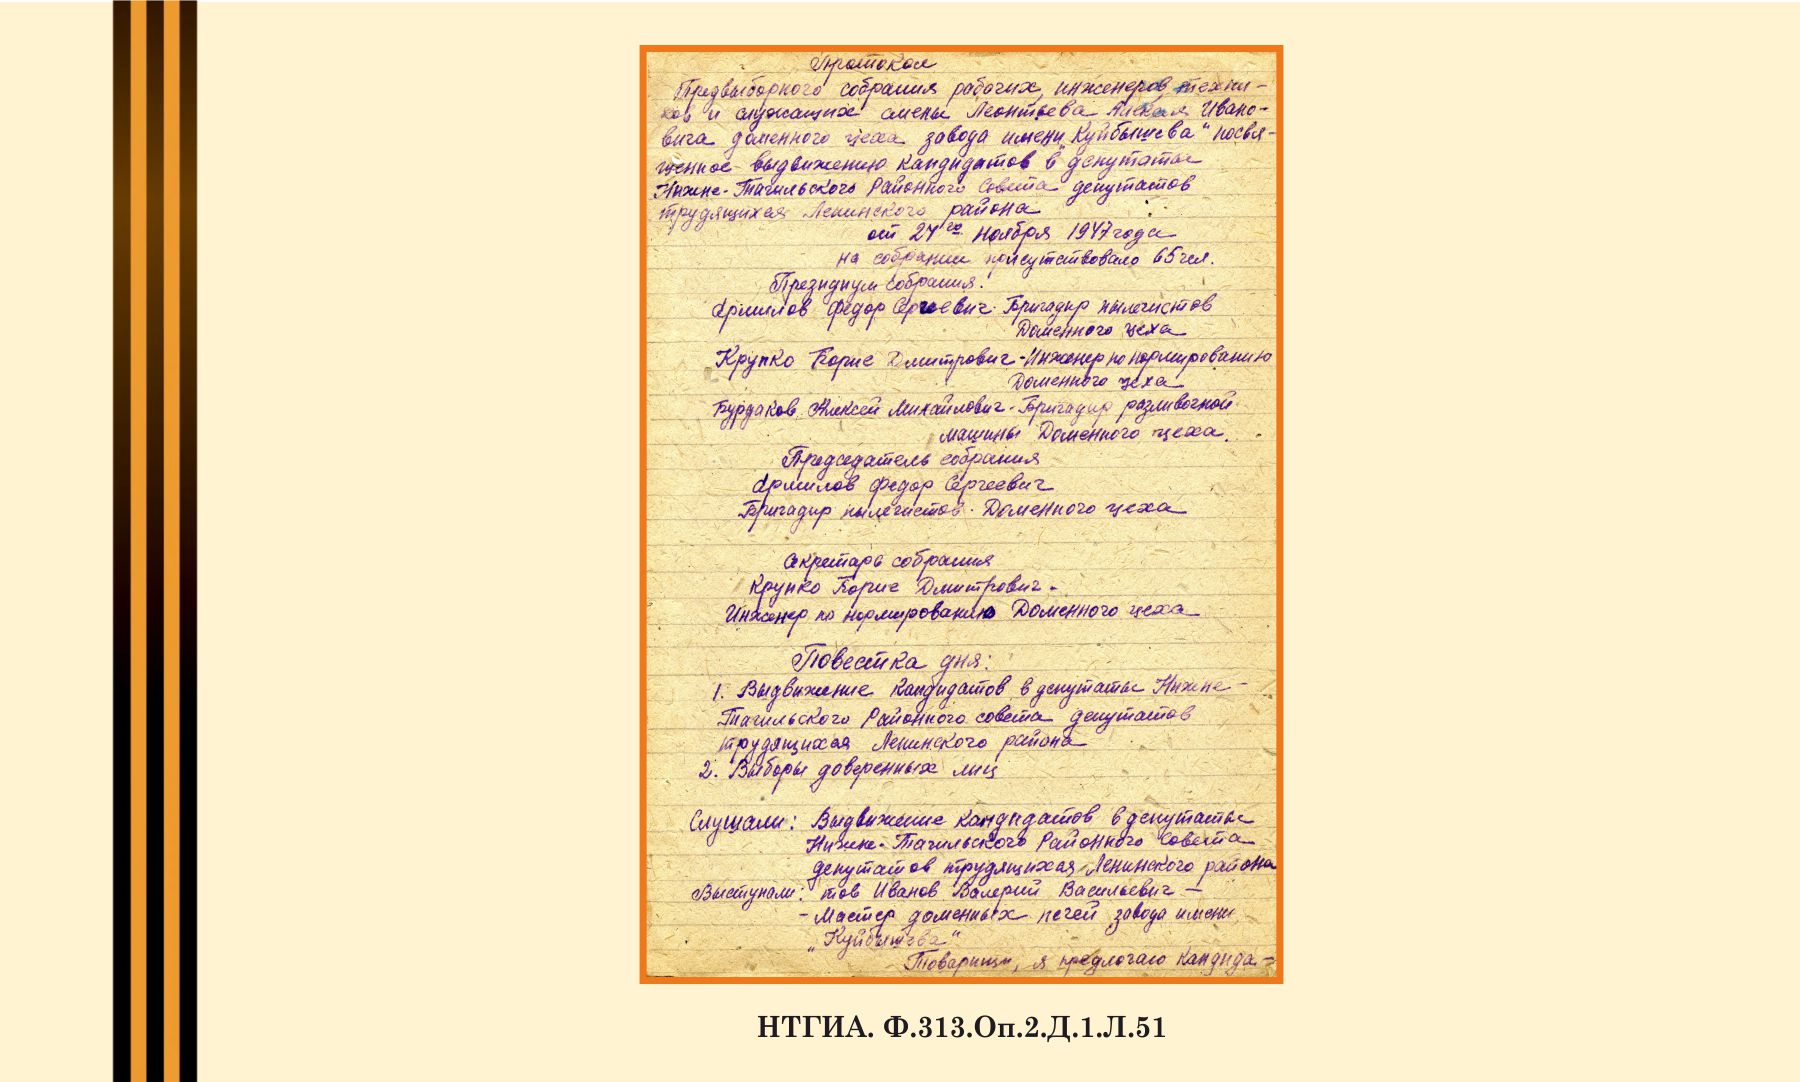 Протокол
Предвыборного собрания рабочих, инженеров, техни-
ков и служащих смены Леонтьева Алексея Ивано-
вича доменного цеха завода имени „Куйбышева" посвя-
щенное выдвижению кандидатов в депутаты
Нижне-Тагильского Районного Совета депутатов
трудящихся Ленинского района
от 24го ноября 1947 года
на собрании присутствовало 65 чел.
Президиум собрания.
Федор Сергеевич - Бригадир пылечистов
Доменного цеха
Крупко Борис Дмитрович - Инженер по нормированию
Доменного цеха
Бурдаков Алексей Михайлович - Бригадир разливочной
машины Доменного цеха.
Председатель собрания
Федор Сергеевич
Бригадир пылечистов Доменного цеха
Секретарь собрания
Крупко Борис Дмитрович -
Инженер по нормированию Доменного цеха
Повестка дня:
1. Выдвижение кандидатов в депутаты Нижне-
Тагильского Районного совета депутатов
трудящихся Ленинского района
2. Выборы доверенных лиц
Слушали: Выдвижение кандидатов в депутаты
Нижне-Тагильского Районного Совета
депутатов трудящихся Ленинского района
Выступали: тов Иванов Валерий Васильевич -
- Мастер доменных печей завода имени
„Куйбышева"
Товарищи, я предлогаю кандида-
НТГИА. Ф.313.Оп.2.Д.1.Л.51